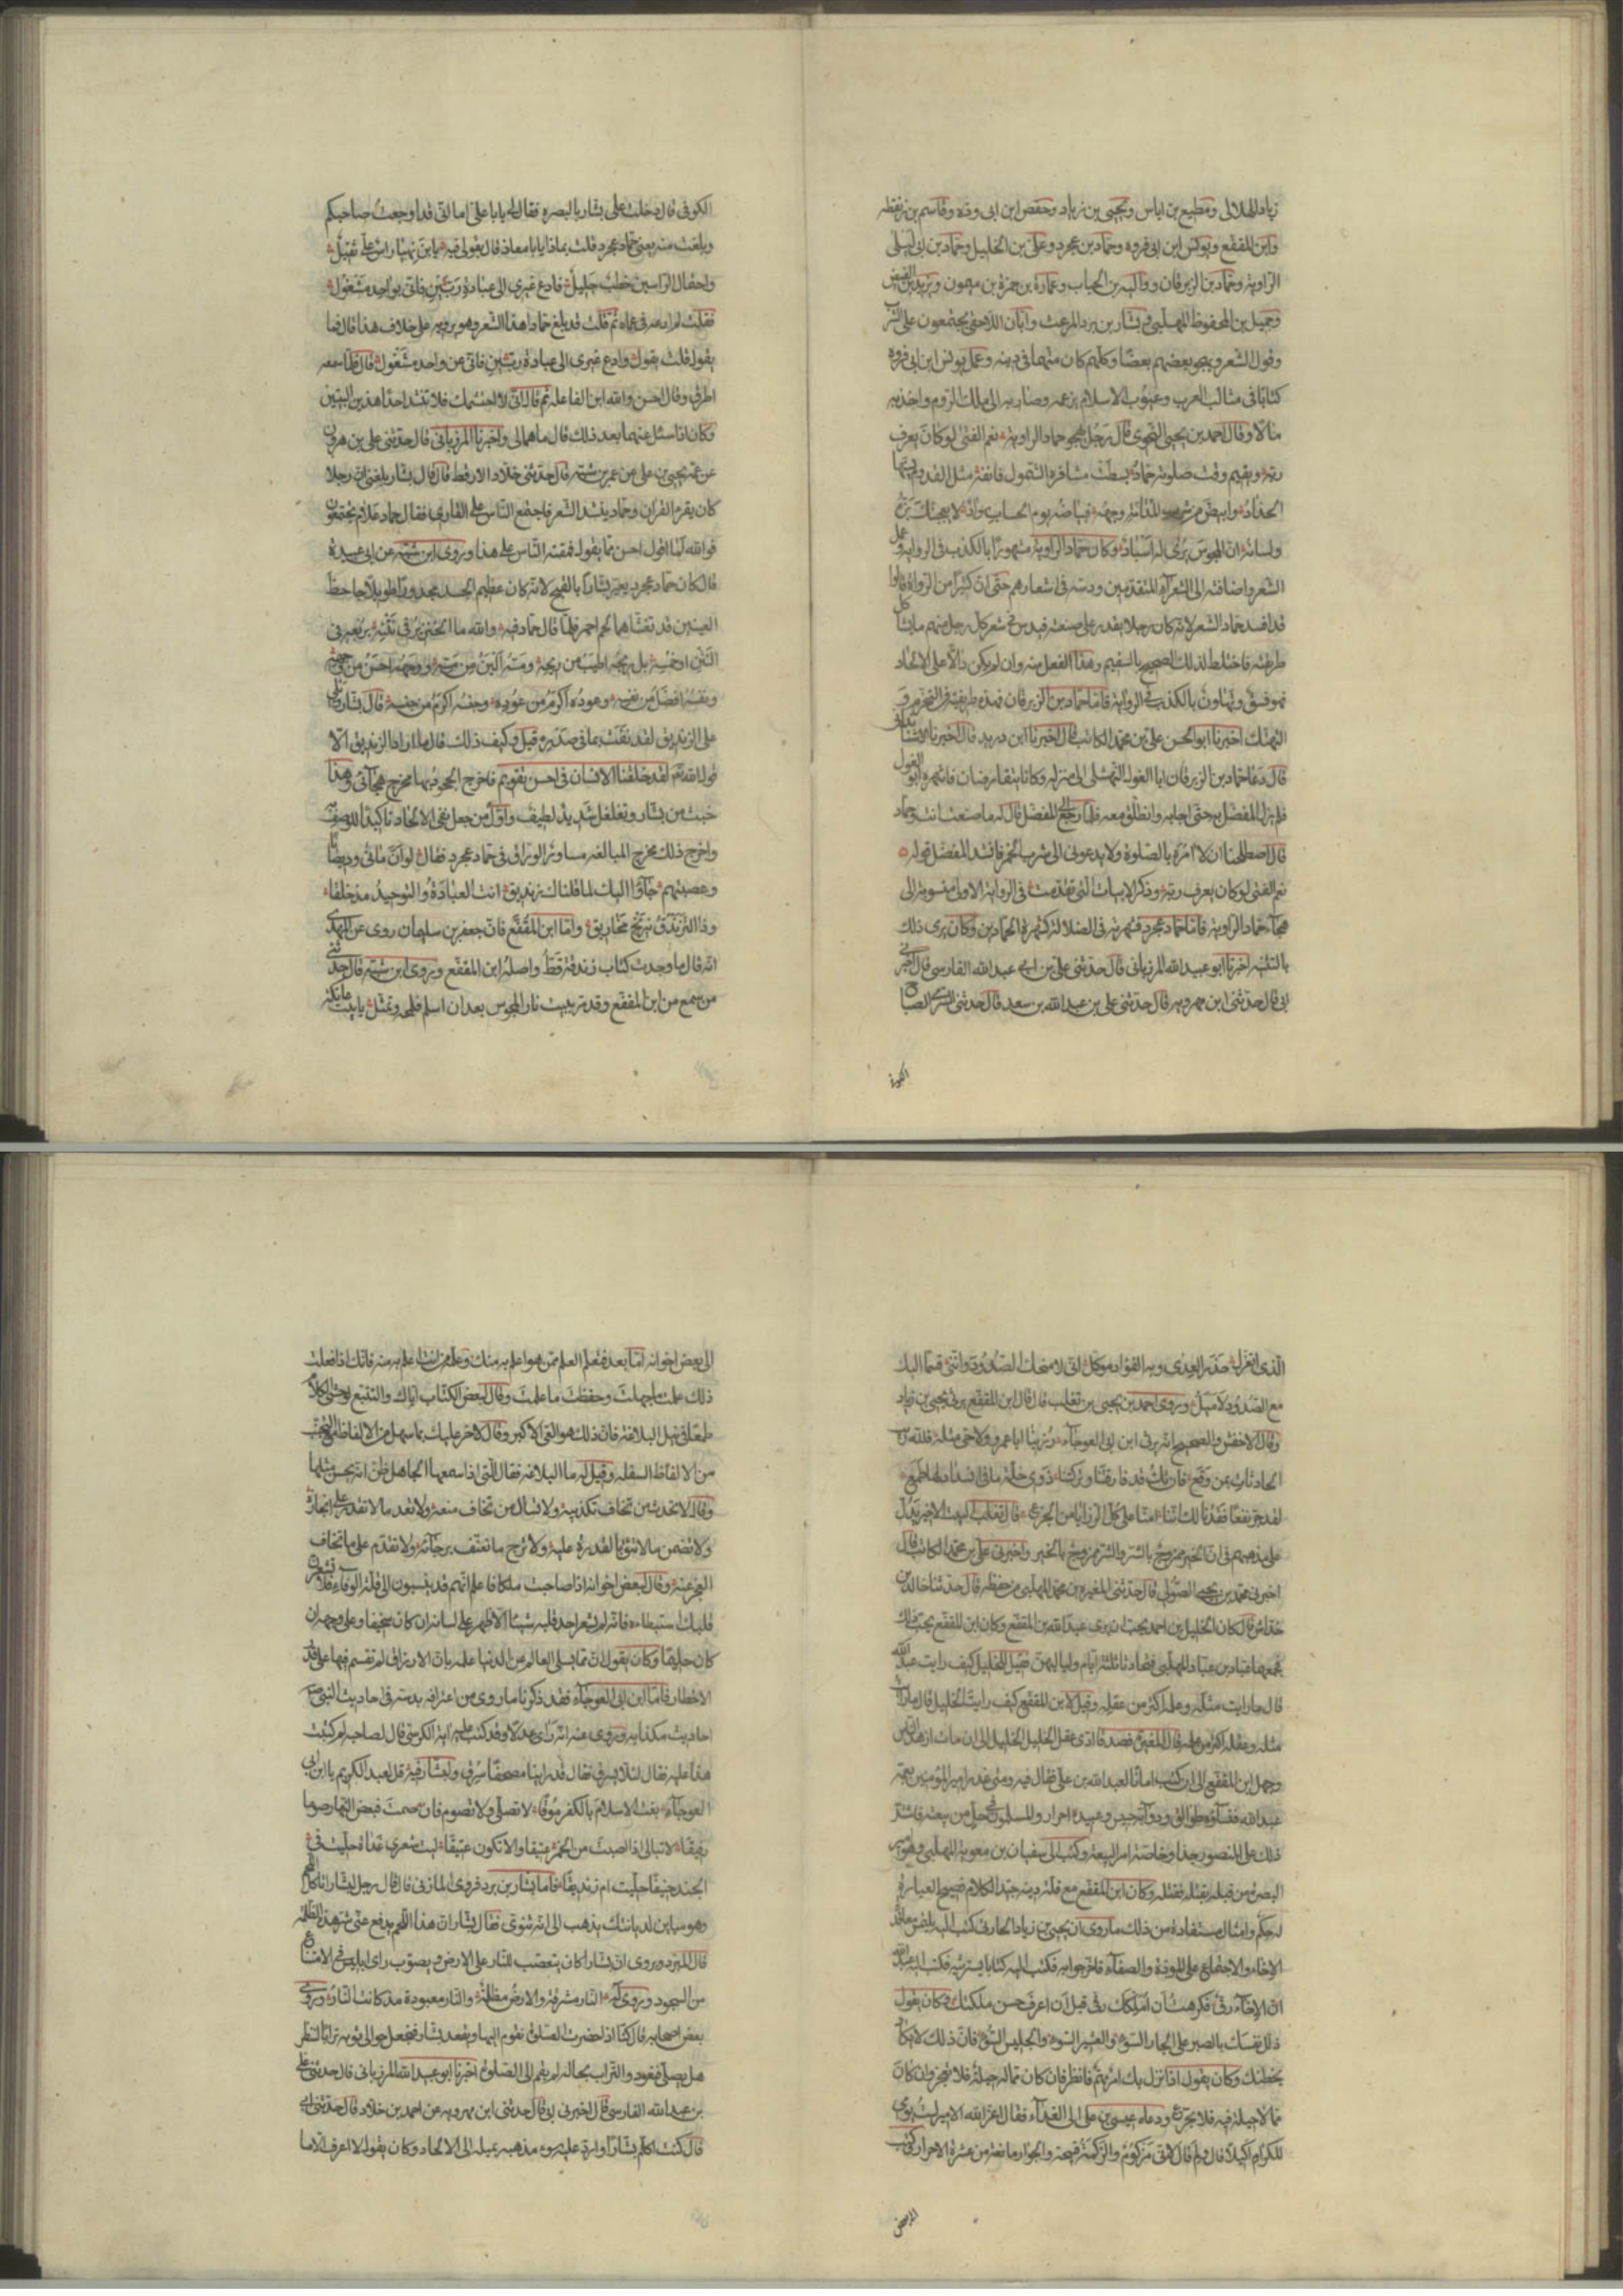 زياد الهلالى ومطيع بن اياس ويحيى بن زياد وحفص ابن ابى وذه وقاسم بن زنقطه
وابن المقفع ويونس ابن ابى فروه وحماد بن عجرد وعلى بن الخليل وحماد بن ابى ليلى
الراويه وحماد بن الزبرقان ووالبه بن الحباب وعمارة بن حمزة بن ميمون ويزيد بن الفيض
وجميل بن المحفوظ المهلبى وبشار بن برد المرعث وابان اللاحقى يجتمعون على الشرب
وقول الشعر ويهجو بعضهم بعضا وكلهم كان متهما فى دينه وعمل يونس ابن ابى فروه
كتابا فى مثالب العرب وعيوب الاسلام بزعمه وصار به الى ملك الروم واخذ منه
مالا وقال احمد بن يحيى النحوى قال رجل يهجو حماد الراويه نعم الفتى لو كان يعرف
ربه ويقيم وقت صلوته حماد بسطت مشافره الشمول فانفه مثل القدوم يسنها
الحداد وابيض من شرب المدامة وجهه فبياضه يوم الحساب سواد لا يعجبنك بزه
ولسانه ان المجوس يرى لها اسباد وكان حماد الراويه مشهورا بالكذب فى الروايه وعمل
الشعر واضافته الى الشعراء المتقدمين ودسه فى اشعارهم حتى ان كثيرا من الرواة قالوا
قد افسد حماد الشعر لانه كان رجلا يقدر على صنعته فيدس فى شعر كل رجل منهم ما يشاكل
طريقته فاختلط لذلك الصحيح بالسقيم وهذا الفعل منه وان لم يكن دالا على الالحاد
فهو فسق وتهاون بالكذب فى الروايه فاما حماد بن الزبرقان فهذه طريقته فى التخرم و
التهتك اخبرنا ابو الحسن على بن محمد الكاتب قال اخبرنا ابن دريد قال اخبرنا الاشنانداني
قال دعا حماد بن الزبرقان ابا الغول النهشلى الى منزله وكانا يتقارضان فانتهره ابو الغول
فلم يزل المفضل به حتى اجابه وانطلق معه فلما رجع الى المفضل قال له ما صنعت انت وحماد
قال اصطلحنا ان لا آمره بالصلوة ولا يدعونى الى شرب الخمر فانشد المفضل قوله
نعم الفتى لو كان يعرف ربه وذكر الابيات التى تقدمت فى الرواية الاولى منسوبة الى
هجاء حماد الراويه فاما حماد عجرد فشهرته فى الضلالة كشهرة الحمادين وكان يرى ذلك
بالتثنيه اخبرنا ابو عبيد الله المرزبانى قال حدثنى على بن ابى عبد الله الفارسى قال اخبرنى
ابى قال حدثنى ابن مهرويه قال حدثنى على بن عبد الله بن سعد قال حدثنى السرى الصباح
الكوفى
الكوفى قال دخلت على بشار بالبصره فقال لى يا با على اما انى قد اوجعت صاحبكم
وبلغت منه يعنى حماد عجرد قلت بماذا يا با معاذ قال بقولى فيه يا بن نهيا راس على ثقيل
واحتمال الراسين خطب جليل فادع غيرى الى عبادة ربين فانى بواحد مشغول
فقلت لم ادعه فى عماه ثم قلت قد بلغ حمادا هذا الشعر وهو يرويه على خلاف هذا قال فما
يقول قلت يقول وادع غيرى الى عبادة ربين فانى عن واحد مشغول قال فلما سمعه
اطرق وقال احسن والله ابن الفاعله ثم قال انى لا احتشمك فلا تنشد احدا هذين البيتين
وكان اذا سئل عنهما بعد ذلك قال ما هما لى واخبرنا المرزبانى قال حدثنى على بن هرون
عن عمه يحيى بن على عن عمر بن شبه قال حدثنى خلاد الارقط قال قال بشار بلغنى ان رجلا
كان يقرء القران وحماد ينشد الشعر فاجتمع الناس على القارى فقال حماد علام يجتمعون
فوالله لما اقول احسن مما يقول فمقته الناس على هذا وروى ابن شبه عن ابى عبيدة
قال كان حماد عجرد يعير بشارا بالقبح لانه كان عظيم الجسد مجدورا طويلا جاحظ
العينين قد تغشاهما لحم احمر فلما قال حماد فيه والله ما الخنزير فى نتنه بربعه فى
النتن او خمسه بل ريحه اطيب من ريحه ومسه الين من مسه ووجهه احسن من وجهه
ونفسه افضل من نفسه وعوده اكرم من عوده وجنسه اكرم من جنسه قال بشار ويلى
على الزنديق لقد نفث بما فى صدره قيل وكيف ذلك قال ما اراد الزنديق الا
قول الله تعالى لقد خلقنا الانسان فى احسن تقويم فاخرج الجحود بها مخرج هجائى وهذا
خبث من بشار وتغلغل شديد لطيف واول من جعل نفى الالحاد تاكيدا للوصف به
واخرج ذلك مخرج المبالغه مساور الوراق فى حماد عجرد فقال لو ان مانى وديصانا
وعصبتهم جاؤا اليك لما قلناك زنديق انت العبادة والتوحيد مذ خلقا
وذا التزندق نيرنج مخاريق واما ابن المقفع فان جعفر بن سليمان روى عن المهدى
انه قال ما وجدت كتاب زندقة قط الا واصله ابن المقفع وروى ابن شبه قال حدثنى
من سمع من ابن المقفع وقد مر ببيت نار المجوس بعد ان اسلم فلمحه وتمثل يا بيت عاتكة
الذى اتعزل حذر العدى وبه الفؤاد موكل انى لامنحك الصدود واننى قسما اليك
مع الصدود لاميل وروى احمد بن يحيى بن تغلب قال قال ابن المقفع يرثى يحيى بن زياد
وقال الاخفش والصحيح انه يرثى ابن ابى العوجاء رزينا ابا عمرو ولا حى مثله فلله ريب
الحادثات بمن وقع فان تك قد فارقتنا وتركتنا ذوى خلة ما فى انسداد لها طمع
لقد جر نفعا فقدنا لك اننا امنا على كل الرزايا من الجزع قال ثعلب البيت الاخير يدل
على مذهبهم فى ان الخير ممزوج بالشر والشر ممزوج بالخير واخبرنى على بن محمد الكاتب قال
اخبرنى محمد بن يحيى الصولى قال حدثنى المغيره بن محمد المهلبى من حفظه قال حدثنا خالد بن
خداش قال كان الخليل بن احمد يحب ان يرى عبد الله بن المقفع وكان ابن المقفع يحب ذلك
فجمعهما عباد بن عباد المهلبى فتحادثا ثلثة ايام ولياليهن فقيل للخليل كيف رايت عبد الله
قال ما رايت مثله وعلمه اكثر من عقله وقيل لابن المقفع كيف رايت الخليل قال ما رايت
مثله وعقله اكثر من علمه قال المغيرة فصدقا ادى عقل الخليل الخليل الى ان مات ازهد الناس
وجهل ابن المقفع الى ان كتب امانا لعبد الله بن على فقال فيه ومتى غدر امير المؤمنين بعمه
عبد الله فنساؤه طوالق ودوابه حبس وعبيده احرار والمسلمون فى حل من بيعته فاشتد
ذلك على المنصور جدا وخاصة امر البيعه وكتب الى سفيان بن معوية المهلبى وهو امير
البصرة من قبله بقتله فقتله وكان ابن المقفع مع قلة دينه جيد الكلام فصيح العبارة
له حكم وامثال مستفادة من ذلك ما روى ان يحيى بن زياد الحارثى كتب اليه يلتمس معاقدة
الاخاء والاجتماع على المودة والصفاء فاخر جوابه فكتب اليه كتابا يسترثيه فكتب اليه عبد الله
ان الاخاء رق فكرهت ان املكك رقى قبل ان اعرف حسن ملكتك وكان يقول
ذلل نفسك بالصبر على الجار السوء والعشير السوء والجليس السوء فان ذلك لا يكاد
يخطئك وكان يقول اذا نزل بك امر مهم فانظر فان كان مما له حيلة فلا تعجز وان كان
مما لا حيلة فيه فلا تجزع ودعاه عيسى بن على الى الغداء فقال اعز الله الامير لست يومى
للكرام اكيلا قال ولم قال لانى مزكوم والزكمة قبيحة الجوار مانعة من عشرة الاحرار وكتب
الى بعض
الى بعض اخوانه اما بعد فتعلم العلم ممن هو اعلم به منك وعلمه من انت اعلم به منه فانك اذا فعلت
ذلك علمت ما جهلت وحفظت ما علمت وقال لبعض الكتاب اياك والتتبع لوحشى الكلام
طمعا فى نيل البلاغه فان ذلك هو العى الاكبر وقال لاخر عليك بما سهل من الالفاظ مع التجنب
من الالفاظ السفله وقيل له ما البلاغه فقال التى اذا سمعها الجاهل ظن انه يحسن مثلها
وقال لا تحدث من تخاف تكذيبه ولا تسال من تخاف منعه ولا تعد ما لا تقدر على انجازه
ولا تضمن ما لا تثق بالقدرة عليه ولا ترج ما تعنف برجائه ولا تقدم على ما تخاف
العجز عنه وقال لبعض اخوانه اذا صاحبت ملكا فاعلم انهم قد ينسبون الى قلة الوفاء فلا تشعرن
قلبك استبطاءه فانه لم يشعر احد قلبه شيئا الا ظهر على لسانه ان كان سخيفا وعلى وجهه ان
كان حليما وكان يقول ان مما يسلى العالم عن الدنيا علمه بان الارزاق لم تقسم فيها على قدر
الاخطار فاما ابن ابى العوجاء فقد ذكرنا ما روى من اعترافه بدسه فى احاديث النبى ص
احاديث مكذابه وروى عنه انه راى عدلا وقد كتب عليه اية الكرسى قال لصاحبه لم كتبت
هذا عليه فقال لئلا يسرق فقال قد راينا مصحفا سرق ولبشار فيه قل لعبد الكريم يا ابن ابى
العوجاء بعت الاسلام بالكفر موقا لا تصلى ولا تصوم فان صمت فبعض النهار صوما
رقيقا لا تبالى اذا اصبت من الخمر عتيقا والا تكون عتيقا ليت شعرى غداة حليت فى
الجند حنيفا حليت ام زنديقا فاما بشار بن برد فروى المازنى قال قال رجل لبشار اتاكل اللحم
وهو مباين لديانتك يذهب الى انه ثنوى فقال بشار ان هذا اللحم يدفع عنى شر هذه الظلمه
قال المبرد ويروى ان بشارا كان يتعصب للنار على الارض ويصوب راى ابليس فى الامتناع
من السجود وروى له النار مشرقة والارض مظلمة والنار معبودة مذ كانت النار وروى
بعض اصحابه قال كنا اذا حضرت الصلوة نقوم اليها ويقعد بشار فنجعل حوالى ثوبه ترابا لننظر
هل يصلى فنعود والتراب بحاله لم يقم الى الصلوة اخبرنا ابو عبيد الله المرزبانى قال حدثنى على
بن عبد الله الفارسى قال اخبرنى ابى قال حدثنى ابن مهرويه عن احمد بن خلاد قال حدثنى ابى
قال كنت اكلم بشارا وارد عليه سوء مذهبه بميله الى الالحاد وكان يقول لا اعرف الا ما